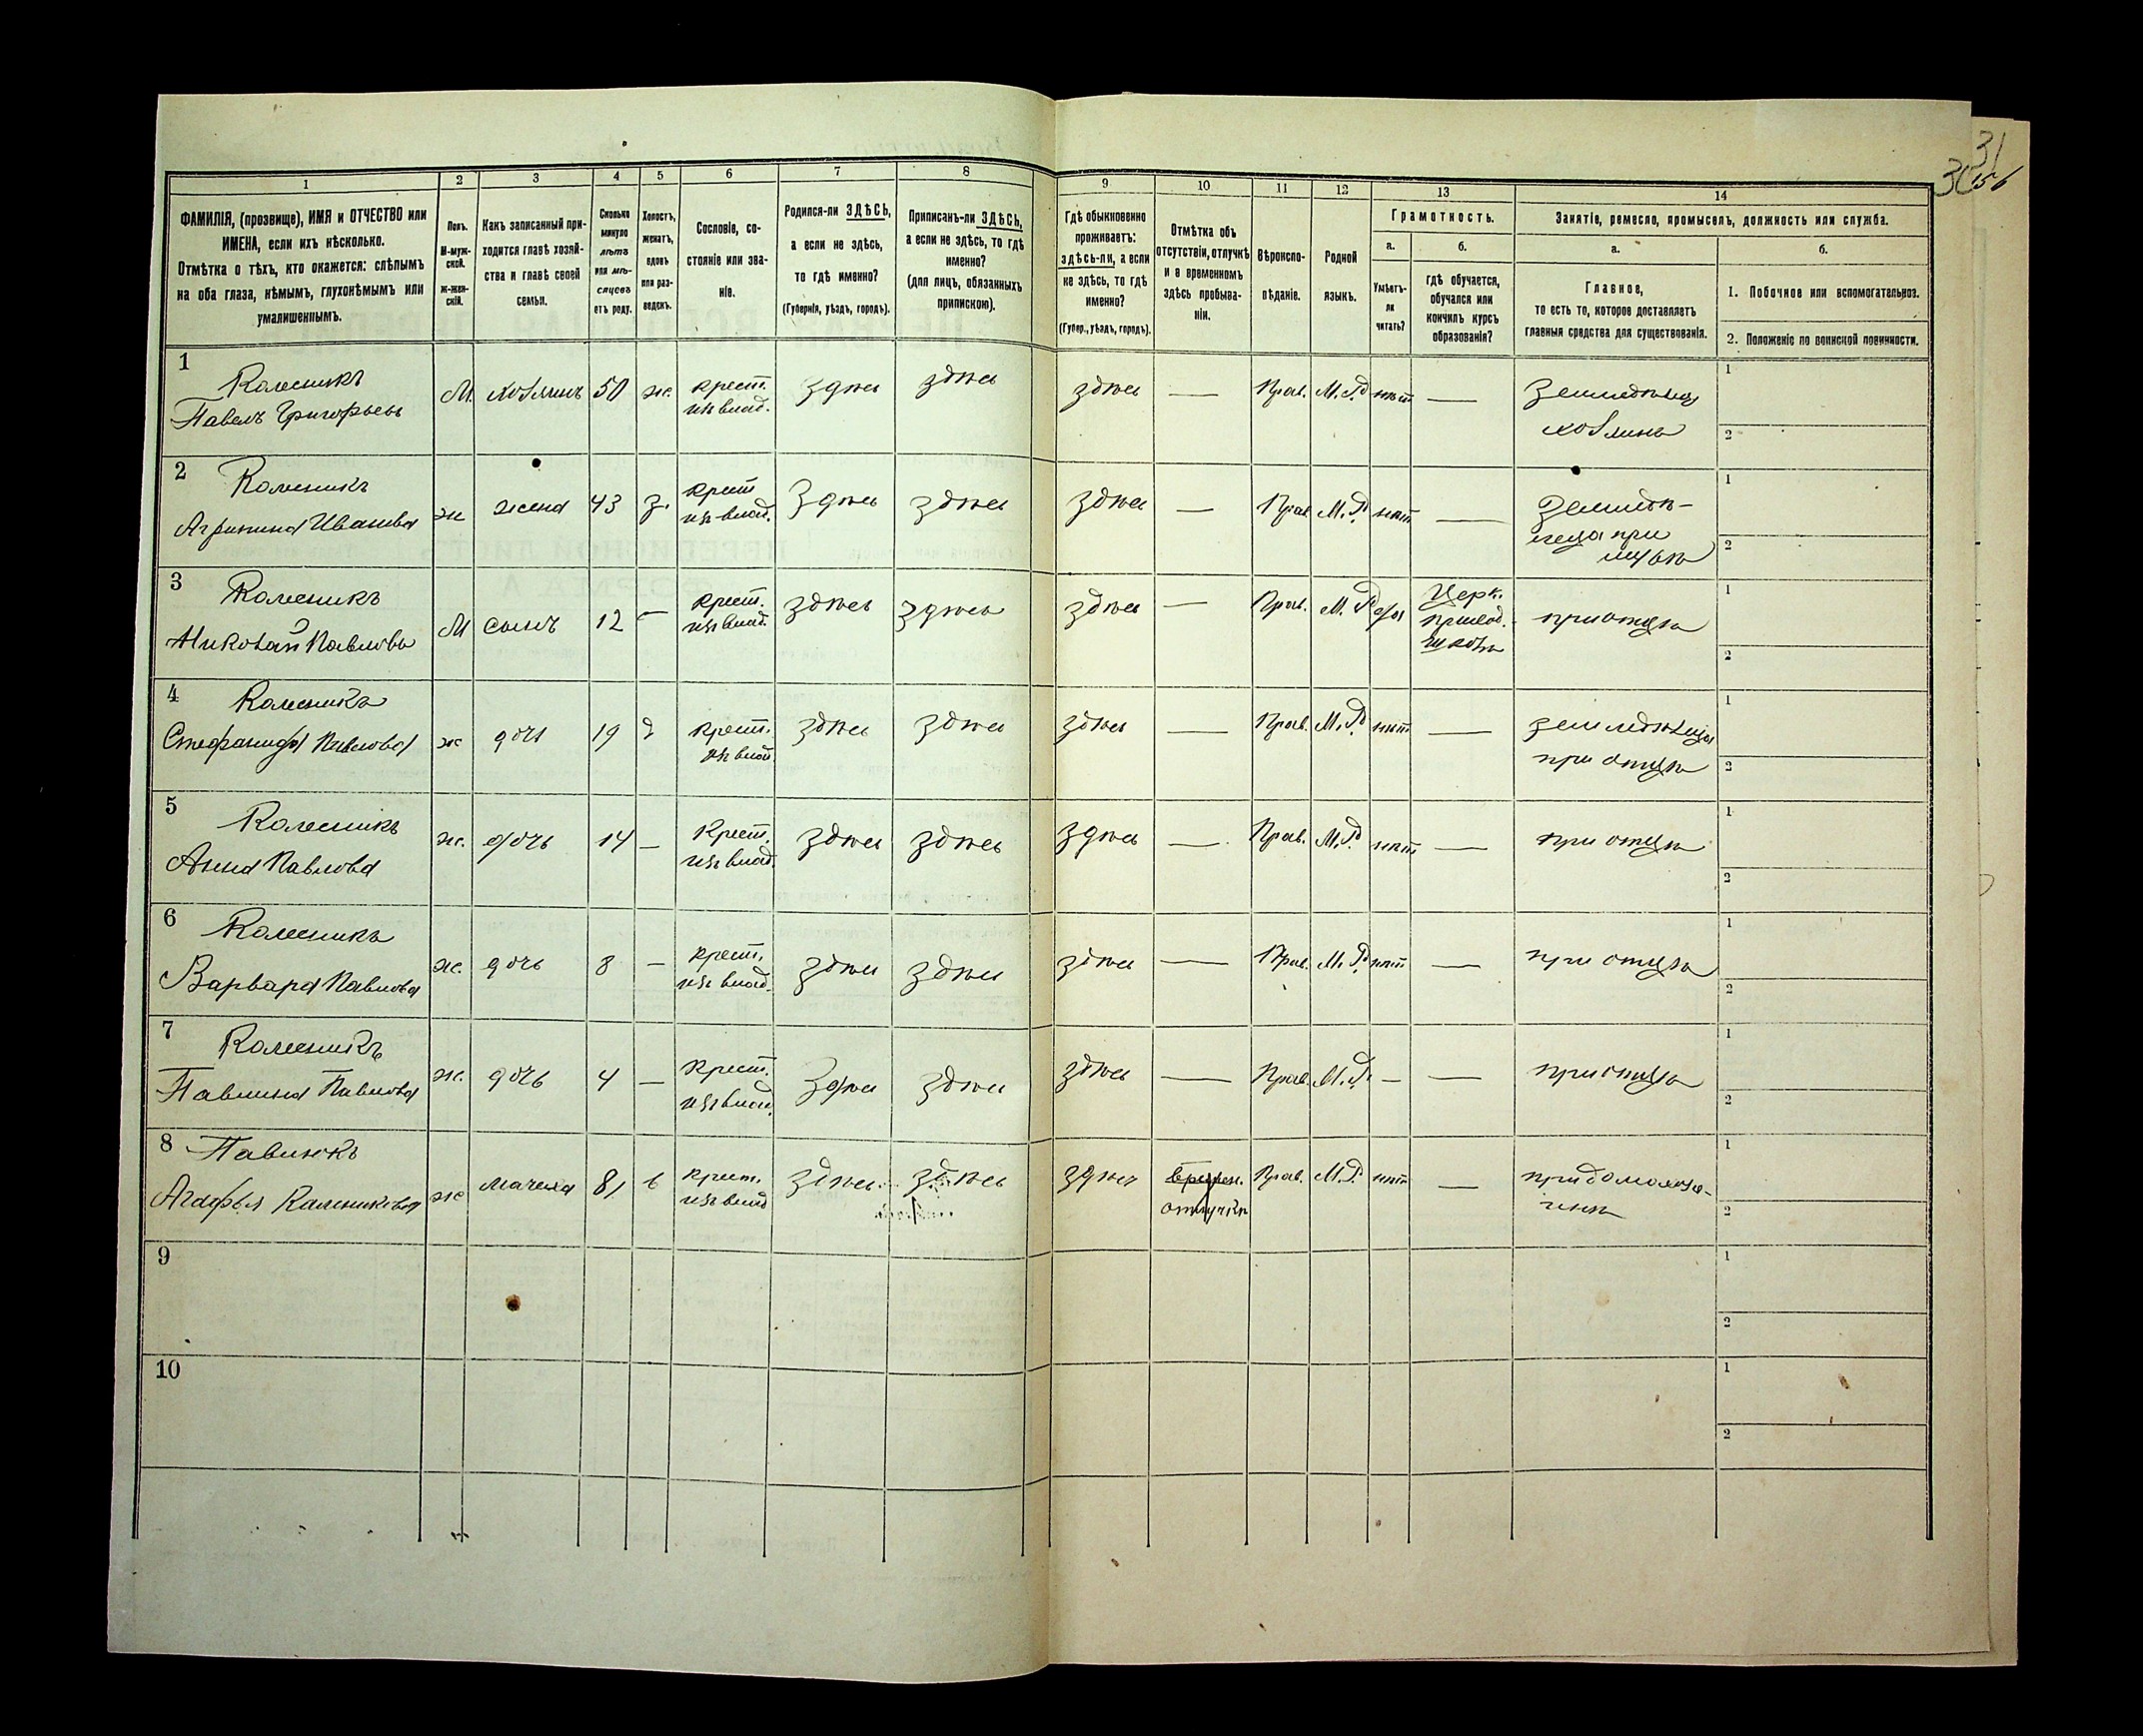 31
30 56
1 2 3 4 5 6 7 8 9 10 11 12 13 14
ФАМИЛІЯ, (прозвище), ИМЯ и ОТЧЕСТВО или
ИМЕНА, если ихъ нѣсколько.
Отмѣтка о тѣхъ, кто окажется: слѣпымъ
на оба глаза, нѣмымъ, глухонѣмымъ или
умалишеннымъ.
Полъ.
М-муж-
ской.
ж-жен-
скій.
Какъ записанный при-
ходится главѣ хозяй-
ства и главѣ своей
семьи.
Сколько
минуло
лѣтъ
или мѣ-
сяцевъ
отъ роду.
Холостъ,
женатъ,
вдовъ
или раз-
веденъ.
Сословіе, со-
стояніе или зва-
ніе.
Родился-ли ЗДѢСЬ,
а если не здѣсь,
то гдѣ именно?
(Губернія, уѣздъ, городъ).
Приписанъ-ли ЗДѢСЬ,
а если не здѣсь, то гдѣ
именно?
(для лицъ, обязанныхъ
припискою).
Гдѣ обыкновенно
проживаетъ:
здѣсь-ли, а если
не здѣсь, то гдѣ
именно?
(Губер., уѣздъ, городъ).
Отмѣтка объ
отсутствіи, отлучкѣ
и о временномъ
здѣсь пребыва-
ніи.
Вѣроиспо-
вѣданіе.
Родной
языкъ.
Грамотность.
а.
Умѣетъ-
ли
читать?
б.
гдѣ обучается,
обучался или
кончилъ курсъ
образованія?
Занятіе, ремесло, промыселъ, должность или служба.
а.
Главное,
то есть то, которое доставляетъ
главныя средства для существованія.
б.
1. Побочное или вспомогательное.
2. Положеніе по воинской повинности.
1
Колесникъ
Павелъ Григорьевъ
М. хозяинъ 50 ж. крест.
изъ влад.
здѣсь здѣсь здѣсь — Прав. М. Р. нѣтъ —
Земледѣлец
хозяинъ
1
2
2
Колесникъ
Агрипина Иванова
ж жена 43 з. крест
изъ влад.
здѣсь здѣсь здѣсь — Прав М. Р. нѣтъ —
Земледѣ-
леца при
мужѣ
1
2
3
Колесникъ
Николай Павловъ
М сынъ 12 — крест.
изъ влад.
здѣсь здѣсь здѣсь — Прав. М. Р. да
Церк.
приход.
школѣ
при отцѣ
1
2
4
Колесникъ
Стефанида Павлова
ж дочь 19 д крест.
изъ влад.
здѣсь здѣсь здѣсь — Прав. М. Р. нѣтъ —
земледѣлца
при отцѣ
1
2
5
Колесникъ
Анна Павлова
ж. дочь 14 — Крест.
изъ влад.
здѣсь здѣсь здѣсь — Прав. М. Р. нѣтъ —
при отцѣ
1
2
6
Колесникъ
Варвара Павлова
ж. дочь 8 — крест.
изъ влад.
здѣсь здѣсь здѣсь — Прав. М. Р. нѣтъ —
при отцѣ
1
2
7
Колесникъ
Павлина Павлова
ж. дочь 4 — Крест.
изъ влад.
здѣсь здѣсь здѣсь — Прав. М. Р. — —
при отцѣ
1
2
8
Агафья
ж мачеха 81 в крест.
изъ влад
здѣсь здѣсь здѣсь времен.
отлучкѣ
Прав. М. Р. нѣтъ —
1
2
9
1
2
10
1
2